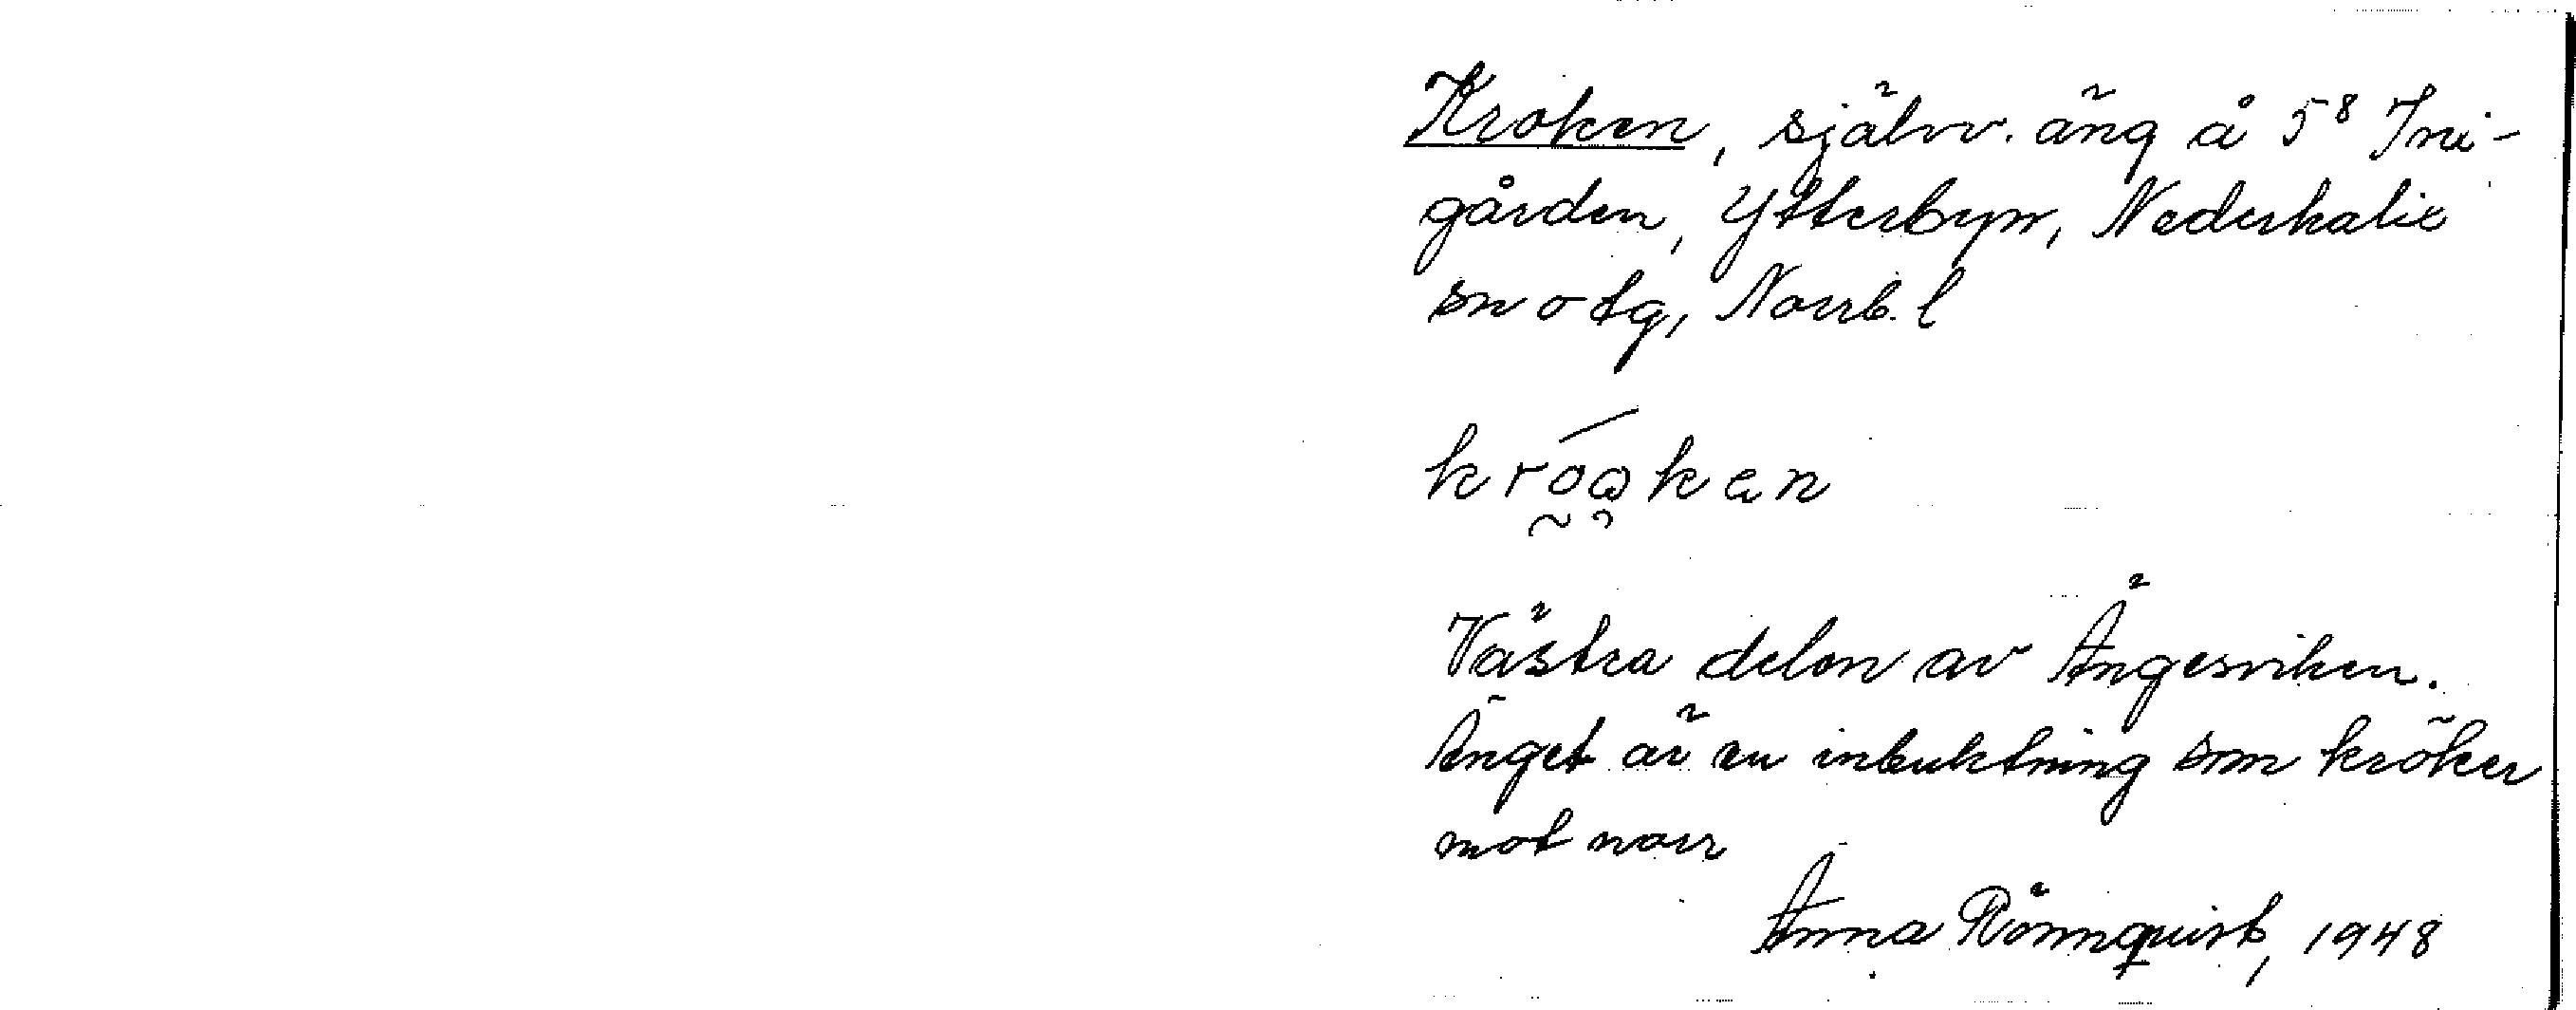 Kroken, självv. äng å 5⁸ Ini-
gården, Ytterbyn, Nederkalix
sn o tg, Norrb. l
kroken
Västra delen av Ängesviken.
Änget är en inbuktning som kröker
mot norr
Anna Rönnquist, 1948